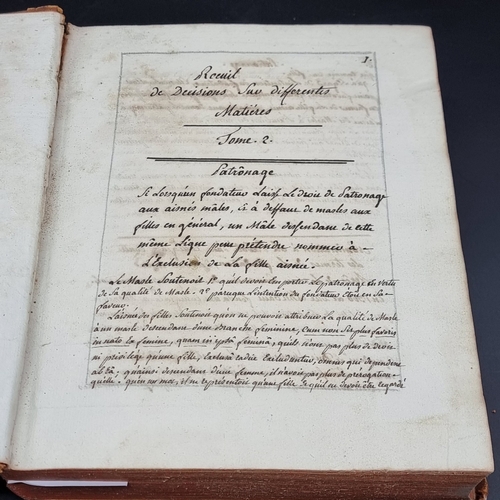 1
Rceuil
de Decisions Sur differentes
Matiéres
Tome. 2.
Patrônage
Si Lorsqu'un fondateur Laisse Le droit de Patronage
aux aisnés mâles, et à deffaut de masles aux
filles en général, un Mâle descendant de cette
même Ligne peut prétendre nommer à
L'Exclusion de La fille aisnée.
Le Masle Soutenoit 1º qu'il devoit Emporter Le patronage en vertu
de Sa qualité de Masle. 2º parceque L'intention du fondateur Etoit en Sa
faveur.
L'aisnée des filles Soutenoit qu'on ne pouvoit attribuer La qualité de Mâle
à un masle descendant d'une branche feminine, Cum non Sit plus favoris
in nato La femine, quam in ipsâ feminâ, qu'ils n'ont pas plus de droit
ni privilege qu'une fille,
qu'ainsi descendant d'une femme, il n'avoit pas plus de prérogative
qu'elle. qu'en un mot, il ne representoit qu'une fille et qu'il ne devoit être regardé